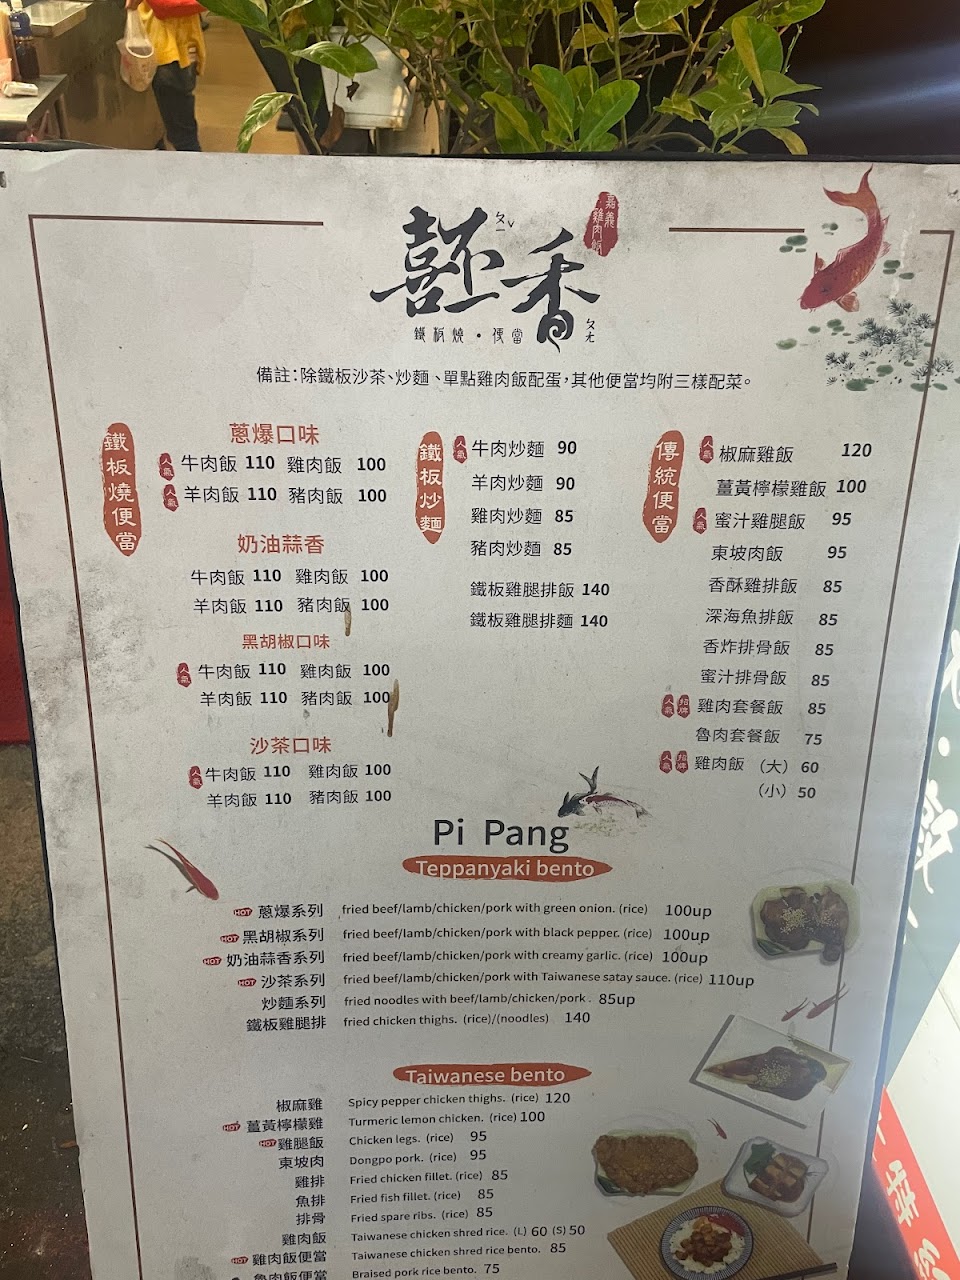 嘉義
雞肉飯
喜丕香
ㄆㄧˇ
ㄆㄤ
鐵板燒・便當
備註:除鐵板沙茶、炒麵、單點雞肉飯配蛋,其他便當均附三樣配菜。
鐵板燒便當
蔥爆口味
人氣 牛肉飯 110 雞肉飯 100
人氣 羊肉飯 110 豬肉飯 100
奶油蒜香
牛肉飯 110 雞肉飯 100
羊肉飯 110 豬肉飯 100
黑胡椒口味
人氣 牛肉飯 110 雞肉飯 100
羊肉飯 110 豬肉飯 100
沙茶口味
人氣 牛肉飯 110 雞肉飯 100
羊肉飯 110 豬肉飯 100
鐵板炒麵
人氣 牛肉炒麵 90
羊肉炒麵 90
雞肉炒麵 85
豬肉炒麵 85
鐵板雞腿排飯 140
鐵板雞腿排麵 140
傳統便當
人氣 椒麻雞飯 120
薑黃檸檬雞飯 100
人氣 蜜汁雞腿飯 95
東坡肉飯 95
香酥雞排飯 85
深海魚排飯 85
香炸排骨飯 85
蜜汁排骨飯 85
人氣 招牌 雞肉套餐飯 85
魯肉套餐飯 75
人氣 招牌 雞肉飯 (大) 60
(小) 50
Pi Pang
Teppanyaki bento
HOT 蔥爆系列 fried beef/lamb/chicken/pork with green onion. (rice) 100up
HOT 黑胡椒系列 fried beef/lamb/chicken/pork with black pepper. (rice) 100up
HOT 奶油蒜香系列 fried beef/lamb/chicken/pork with creamy garlic. (rice) 100up
HOT 沙茶系列 fried beef/lamb/chicken/pork with Taiwanese satay sauce. (rice) 110up
炒麵系列 fried noodles with beef/lamb/chicken/pork . 85up
鐵板雞腿排 fried chicken thighs. (rice)/(noodles) 140
Taiwanese bento
椒麻雞 Spicy pepper chicken thighs. (rice) 120
HOT 薑黃檸檬雞 Turmeric lemon chicken. (rice) 100
HOT 雞腿飯 Chicken legs. (rice) 95
東坡肉 Dongpo pork. (rice) 95
雞排 Fried chicken fillet. (rice) 85
魚排 Fried fish fillet. (rice) 85
排骨 Fried spare ribs. (rice) 85
雞肉飯 Taiwanese chicken shred rice. (L) 60 (S) 50
HOT 雞肉飯便當 Taiwanese chicken shred rice bento. 85
魯肉飯便當 Braised pork rice bento. 75